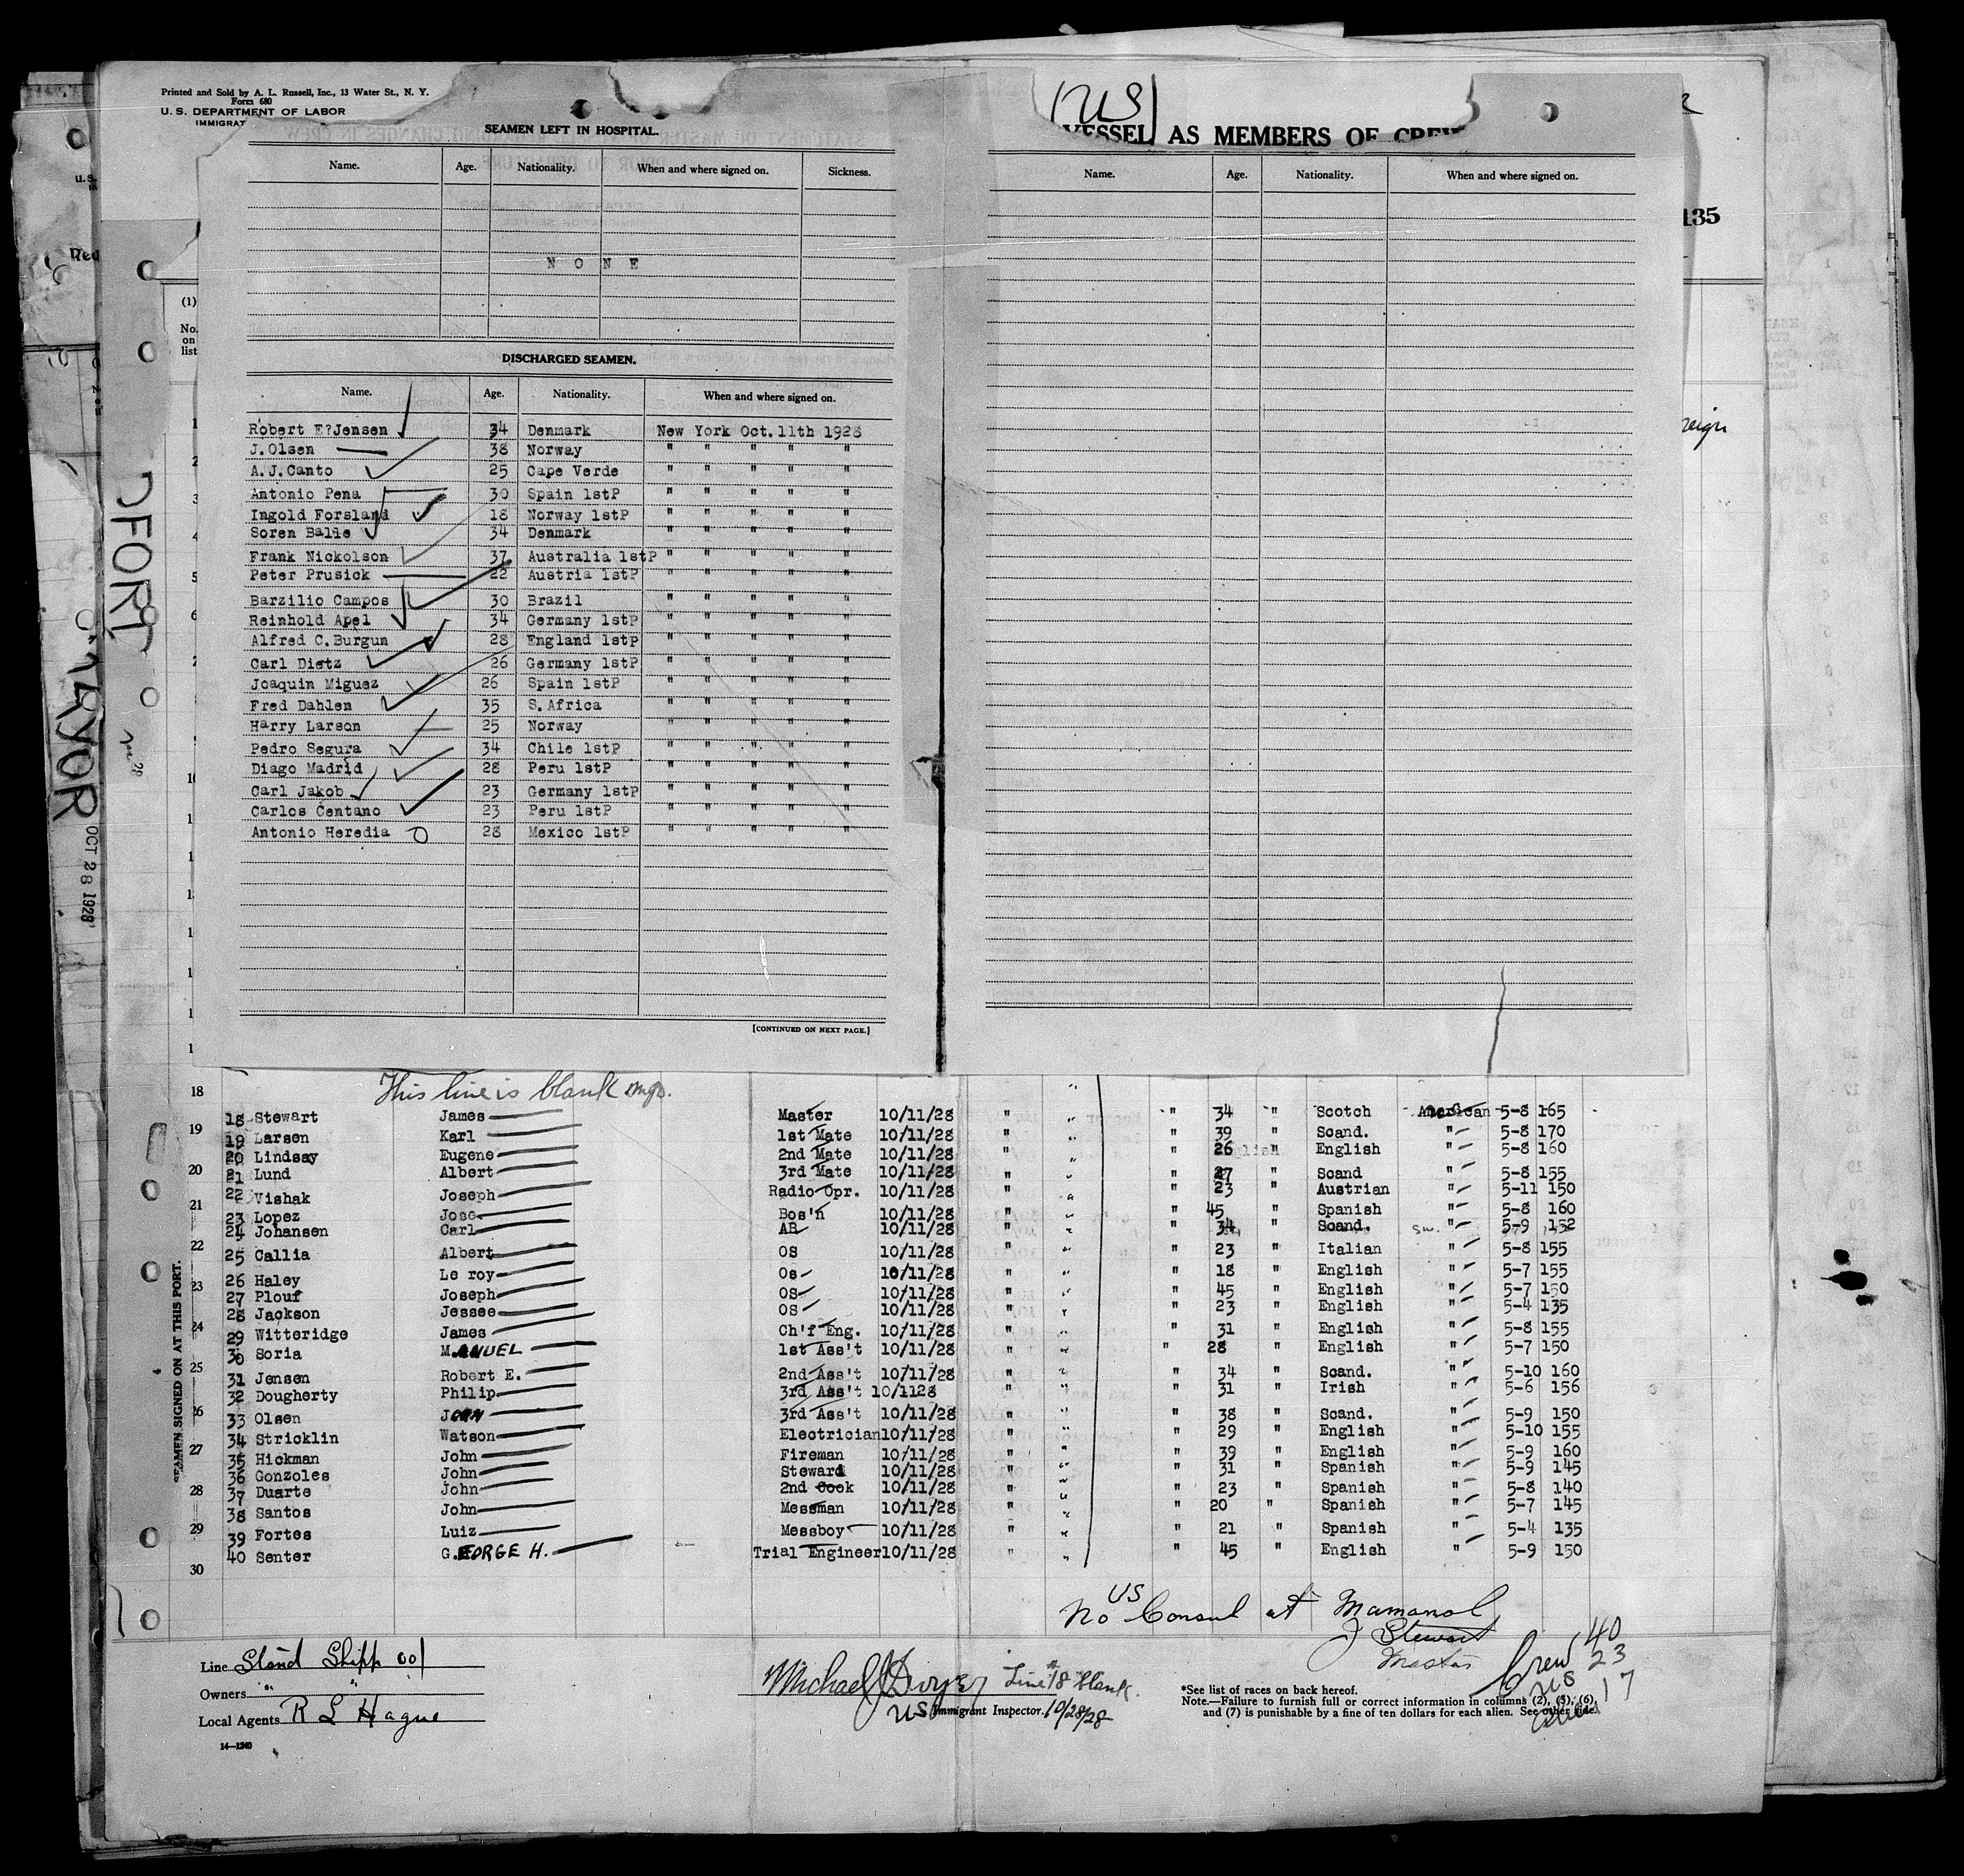 Printed and Sold by A. L. Russell, Inc., 13 Water St., N. Y.
Form 680
U. S. DEPARTMENT OF LABOR
IMMIGRAT
SEAMEN LEFT IN HOSPITAL.
Name. Age. Nationality. When and where signed on. Sickness.
N O N E
DISCHARGED SEAMEN.
Name. Age. Nationality. When and where signed on.
Robert E?Jensen 34 Denmark New York Oct. 11th 1928
J. Olsen 38 Norway " " " " "
A. J. Canto 25 Cape Verde " " " " "
Antonio Pena 30 Spain 1stP " " " " "
Ingold Forsland 18 Norway 1stP " " " " "
Soren Balle 34 Denmark " " " " "
Frank Nickolson 37 Australia 1stP " " " " "
Peter Prusick 22 Austria 1stP " " " " "
Barzilio Campos 30 Brazil " " " " "
Reinhold Apel 34 Germany 1stP " " " " "
Alfred C. Burgun 28 England 1stP " " " " "
Carl Dietz 26 Germany 1stP " " " " "
Joaquin Miguez 26 Spain 1stP " " " " "
Fred Dahlen 35 S. Africa " " " " "
Harry Larson 25 Norway " " " " "
Pedro Segura 34 Chile 1stP " " " " "
Diago Madrid 28 Peru 1stP " " " " "
Carl Jakob 23 Germany 1stP " " " " "
Carlos Centano 23 Peru 1stP " " " " "
Antonio Heredia 28 Mexico 1stP " " " " "
[CONTINUED ON NEXT PAGE.]
(US)
VESSEL AS MEMBERS OF CREW
Name. Age. Nationality. When and where signed on.
135
reign
(1)
No. on list
DFORD
OCT 28 1928
SEAMEN SIGNED ON AT THIS PORT.
18 This line is blank
18 Stewart James Master 10/11/28 " " " 34 " Scotch American 5-8 165
19 Larsen Karl 1st Mate 10/11/28 " " " 39 " Scand. " 5-8 170
20 Lindsay Eugene 2nd Mate 10/11/28 " " " 26 " English " 5-8 160
21 Lund Albert 3rd Mate 10/11/28 " " " 27 " Scand " 5-8 155
22 Vishak Joseph Radio Opr. 10/11/28 " " " 23 " Austrian " 5-11 150
23 Lopez Jose Bos'n 10/11/28 " " " 45 " Spanish " 5-8 160
24 Johansen Carl AB 10/11/28 " " " 34 " Scand. Sw. " 5-9 152
25 Callia Albert OS 10/11/28 " " " 23 " Italian " 5-8 155
26 Haley Le roy Os 10/11/28 " " " 18 " English " 5-7 155
27 Plouf Joseph OS 10/11/28 " " " 45 " English " 5-7 150
28 Jackson Jessee OS 10/11/28 " " " 23 " English " 5-4 135
29 Witteridge James Ch'f Eng. 10/11/28 " " " 31 " English " 5-8 155
30 Soria MANUEL 1st Ass't 10/11/28 " " " 28 " English " 5-7 150
31 Jensen Robert E. 2nd Ass't 10/11/28 " " " 34 " Scand. " 5-10 160
32 Dougherty Philip 3rd Ass't 10/1128 " " " 31 " Irish " 5-6 156
33 Olsen JOHN 3rd Ass't 10/11/28 " " " 38 " Scand. " 5-9 150
34 Stricklin Watson Electrician 10/11/28 " " " 29 " English " 5-10 155
35 Hickman John Fireman 10/11/28 " " " 39 " English " 5-9 160
36 Gonzoles John Steward 10/11/28 " " " 31 " Spanish " 5-9 145
37 Duarte John 2nd Cook 10/11/28 " " " 23 " Spanish " 5-8 140
38 Santos John Messman 10/11/28 " " " 20 " Spanish " 5-7 145
39 Fortes Luiz Messboy 10/11/28 " " " 21 " Spanish " 5-4 135
40 Senter GEORGE H. Trial Engineer 10/11/28 " " " 45 " English " 5-9 150
30
No US Consul at Mamonal
J Stewart
Master
Crew 40
US 23
alien 17
Line Stand Shipp Co
Owners " "
Local Agents R L Hague
14—1240
Michael J Dwyer Line #18 blank.
US Immigrant Inspector. 10/28/28
*See list of races on back hereof.
Note.—Failure to furnish full or correct information in columns (2), (5), (6), and (7) is punishable by a fine of ten dollars for each alien. See other side.